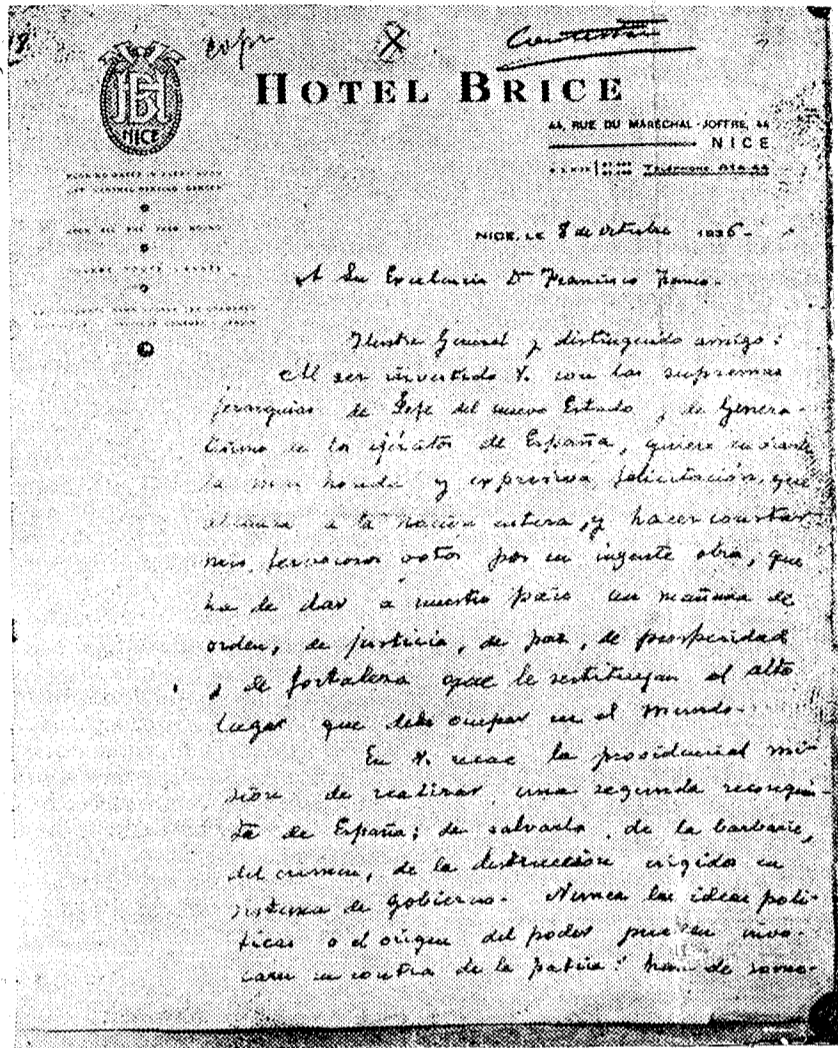 copr
X
HOTEL BRICE
NICE
44, RUE DU MARÉCHAL-JOFFRE, 44
NICE
NICE, LE 8 de octubre 1936-
A Su Excelencia Dn Francisco Franco.
Ilustre General y distinguido amigo:
Al ser investido V. con las supremas
jerarquias de Jefe del nuevo Estado y de Genera-
lísimo de los ejércitos de España, quiero enviarle
mi honda y expresiva felicitación, que
alcanza a la nación entera, y hacer constar
mis fervorosos votos por su ingente obra, que
ha de dar a nuestro país un mañana de
orden, de justicia, de paz, de prosperidad
y de fortaleza que le restituyan al alto
lugar que debe ocupar en el mundo.
En V. recae la providencial mi-
sión de realizar una segunda reconquis-
ta de España; de salvarla de la barbarie,
del crimen, de la destrucción erigidos en
sistema de gobierno. Nunca las ideas polí-
ticas o el origen del poder pueden invo-
carse en contra de la patria: han de some-